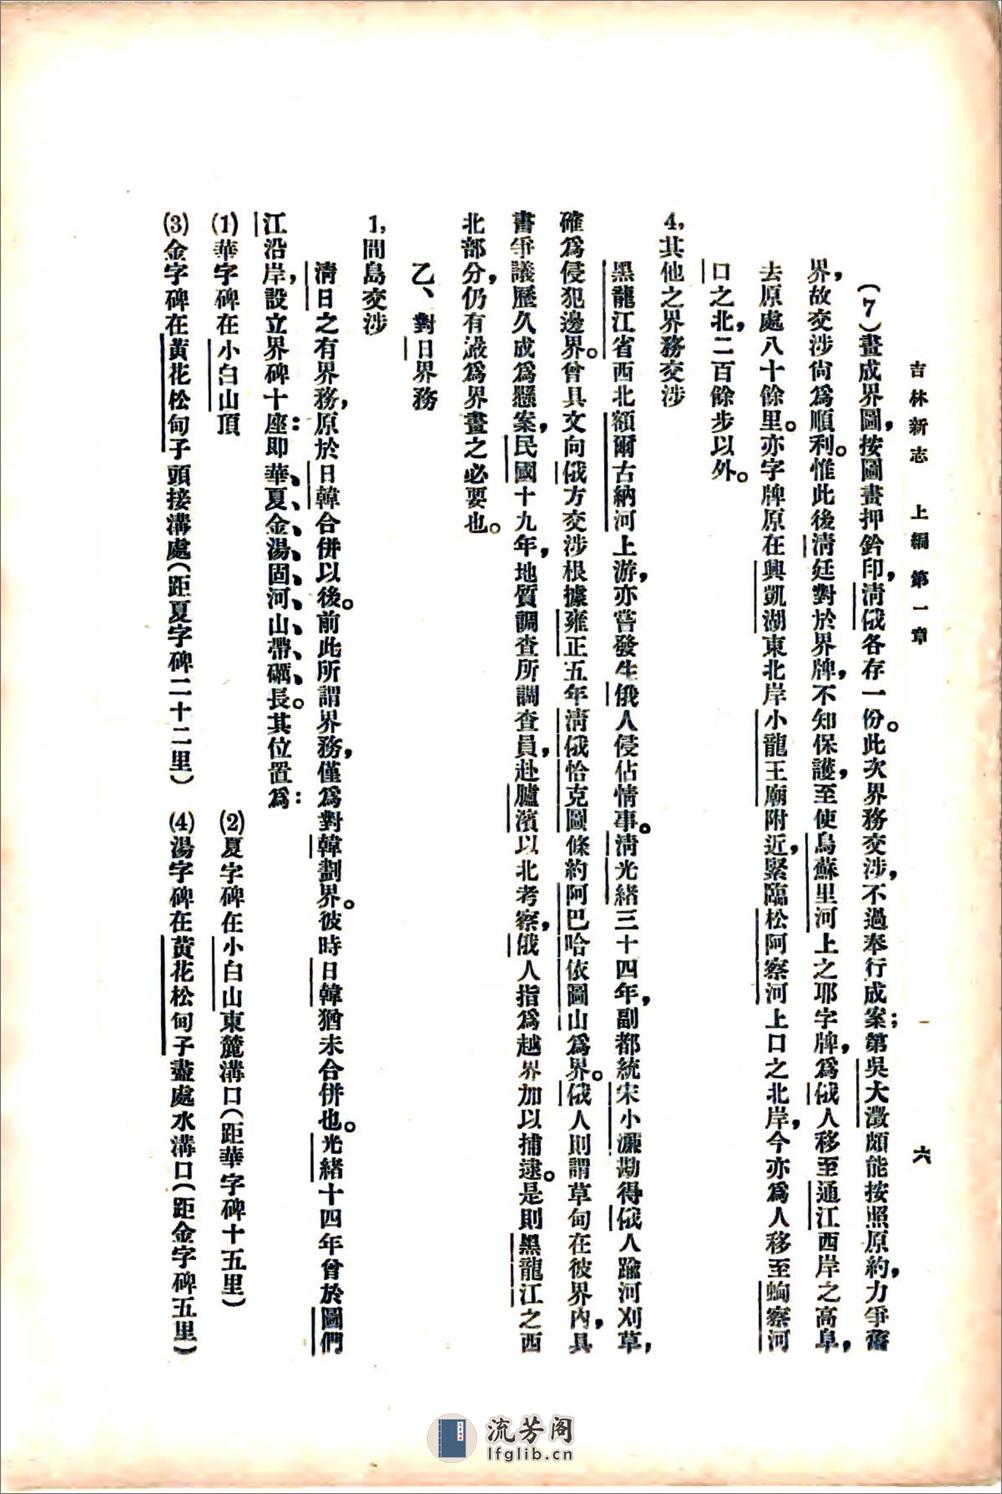 吉林新志　上編　第一章
六
(7)畫成界圖，按圖畫押鈐印，清俄各存一份。此次界務交涉，不過奉行成案；第吳大澂頗能按照原約，力爭舊
界，故交涉尚為順利。惟此後清廷對於界牌，不知保護，至使烏蘇里河上之耶字牌，為俄人移至通江西岸之高阜，
去原處八十餘里。亦字牌原在興凱湖東北岸小龍王廟附近，緊臨松阿察河上口之北岸，今亦為人移至蜘察河
口之北，二百餘步以外。
4，其他之界務交涉
黑龍江省西北額爾古納河上游，亦嘗發生俄人侵佔情事。清光緒三十四年，副都統宋小濂勘得俄人踰河刈草，
確為侵犯邊界。曾具文向俄方交涉根據雍正五年清俄恰克圖條約阿巴哈依圖山為界。俄人則謂草甸在彼界內，具
書爭議歷久成為懸案，民國十九年，地質調查所調查員，赴臚濱以北考察，俄人指為越界加以捕逮。是則黑龍江之西
北部分，仍有嚴為界畫之必要也。
乙、對日界務
1，間島交涉
清日之有界務，原於日韓合併以後。前此所謂界務，僅為對韓劃界。彼時日韓猶未合併也。光緒十四年曾於圖們
江沿岸，設立界碑十座：即華、夏、金、湯、固、河、山、帶、礪、長。其位置為：
(1)華字碑在小白山頂
(2)夏字碑在小白山東麓溝口(距華字碑十五里)
(3)金字碑在黃花松甸子頭接溝處(距夏字碑二十二里)
(4)湯字碑在黃花松甸子盡處水溝口(距金字碑五里)
流芳阁
lfglib.cn